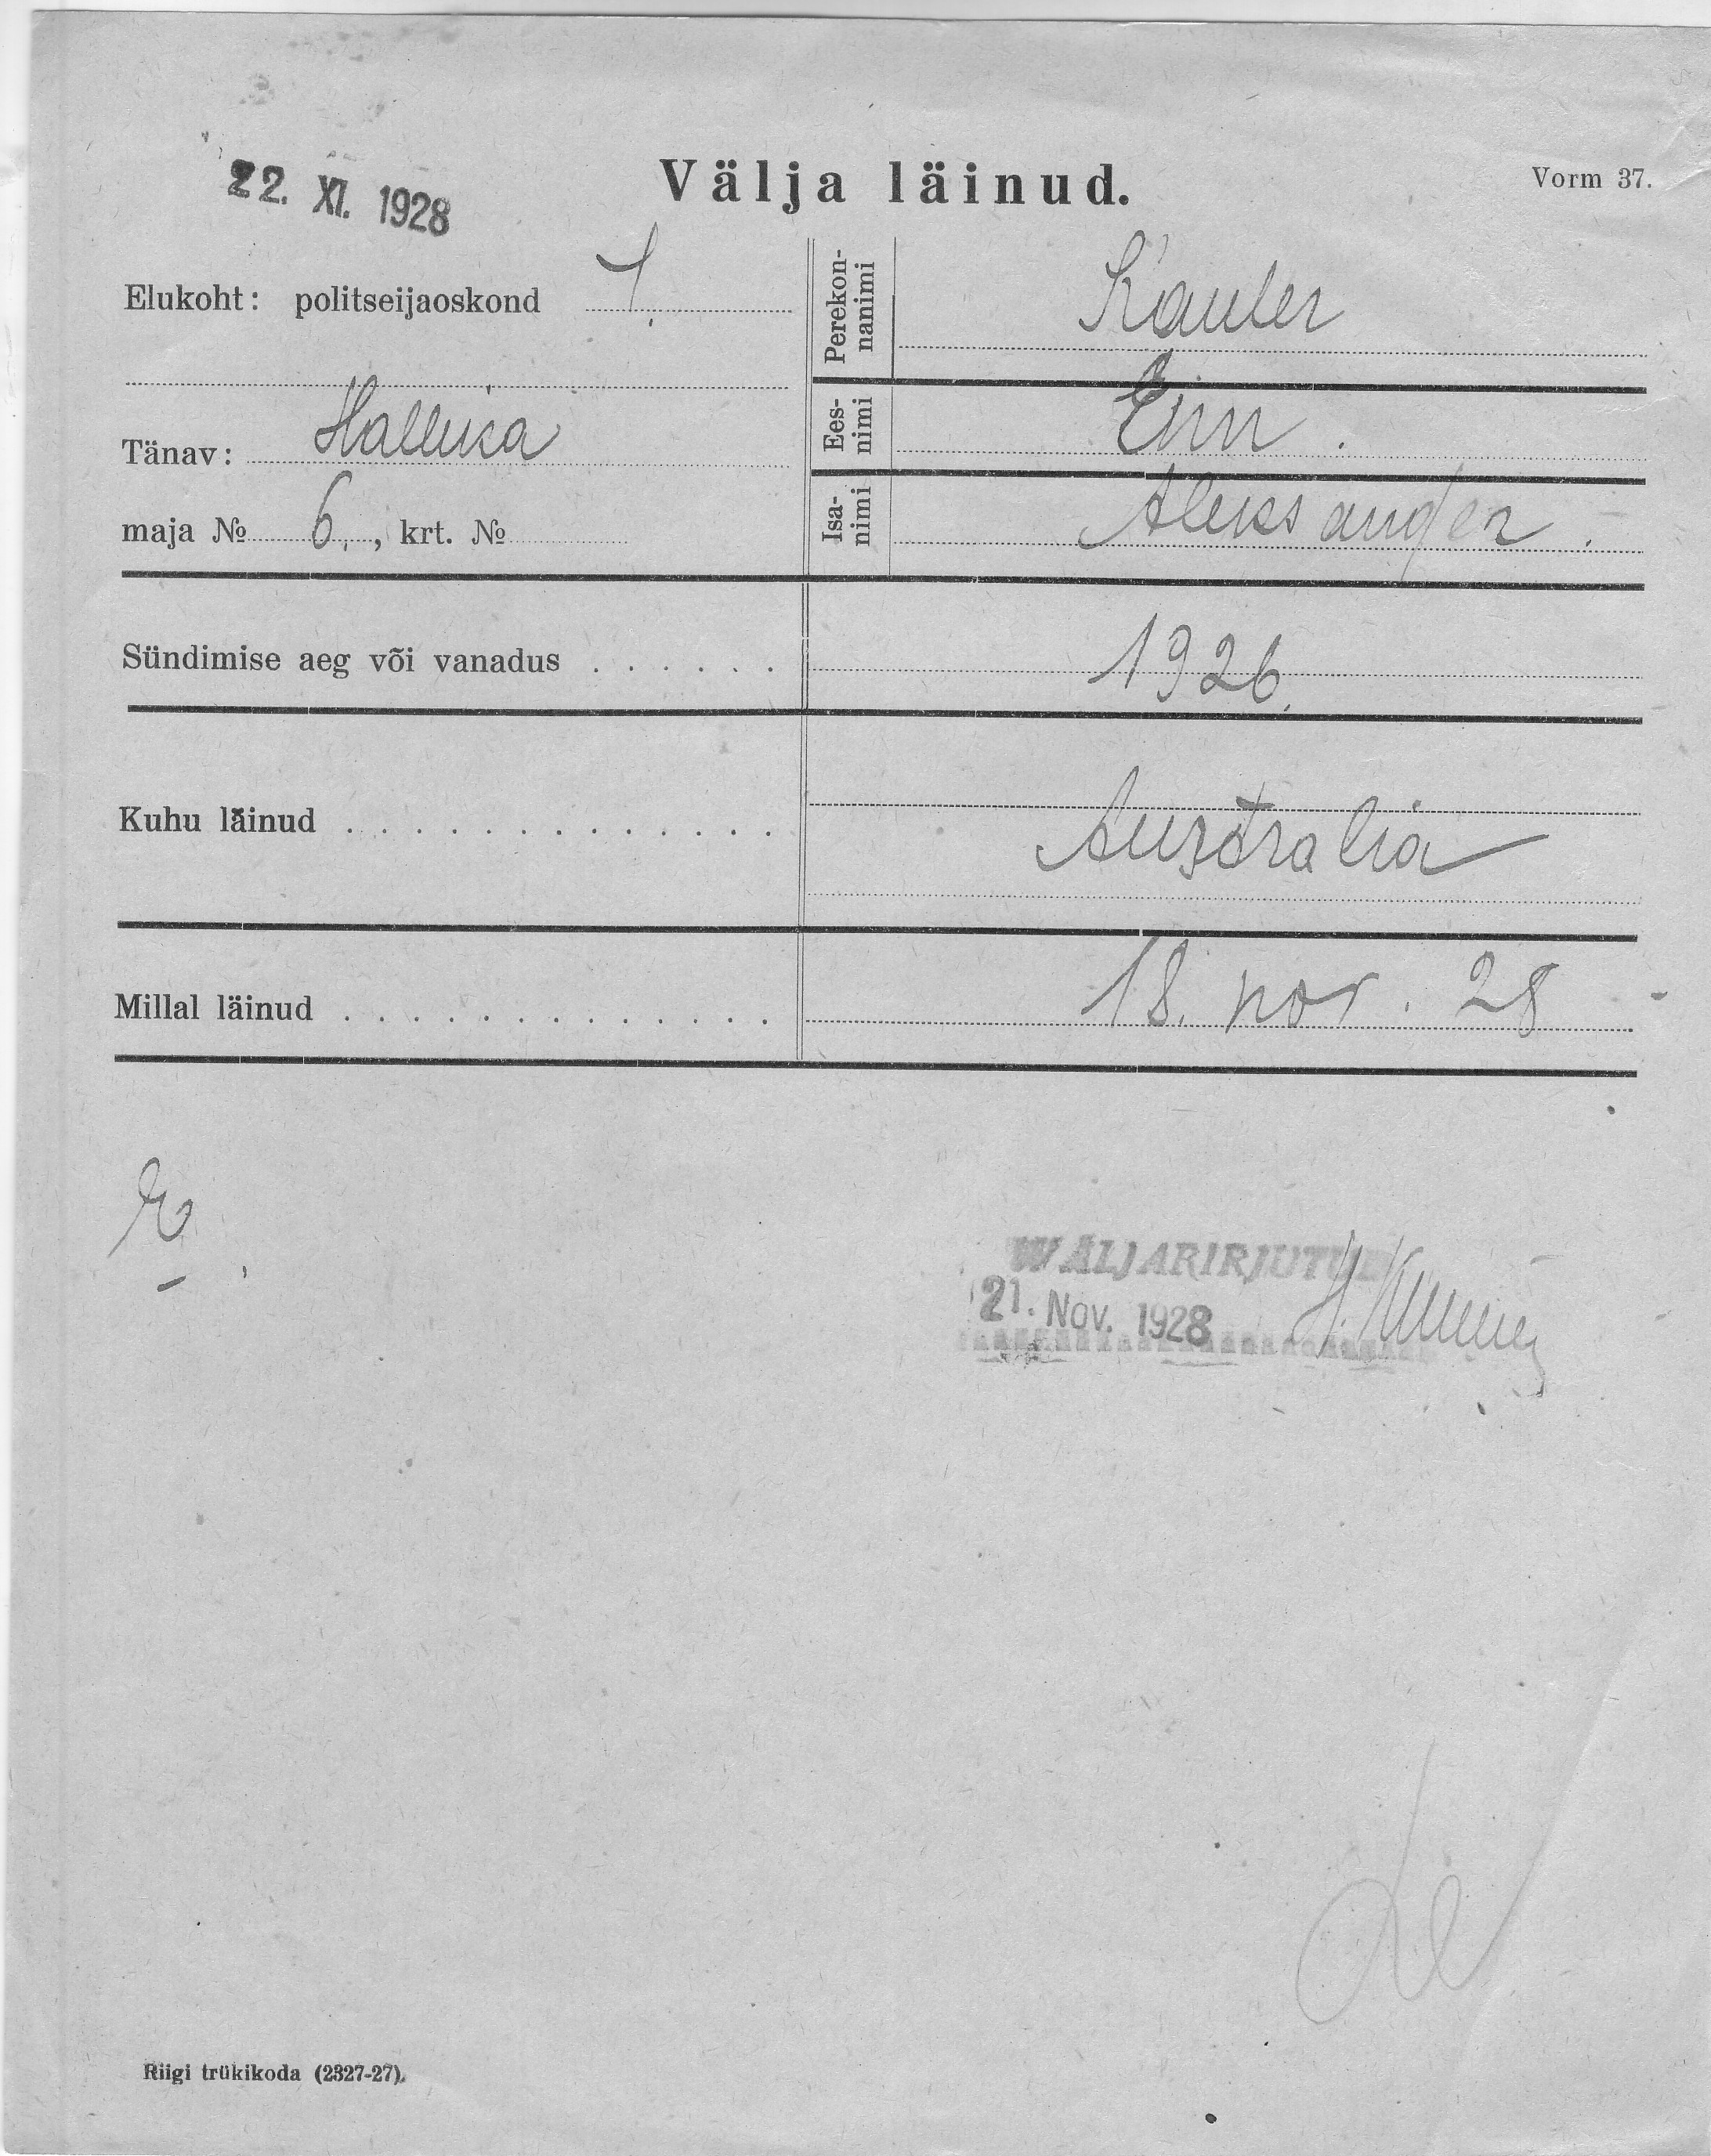 22. XI. 1928
Välja läinud.
Vorm 37.
Elukoht: politseijaoskond 1.
Tänav: Halluka
maja № 6., krt. №
Perekon-
nanimi
Kauler
Ees-
nimi
Enn.
Isa-
nimi
Aleksander.
Sündimise aeg või vanadus . . . . . . . 1926.
Kuhu läinud . . . . . . . . . . . . . . . Australia
Millal läinud . . . . . . . . . . . . . . . 18. nov. 28
WÄLJAKIRJUTUD
21. Nov. 1928
Riigi trükikoda (2327-27).